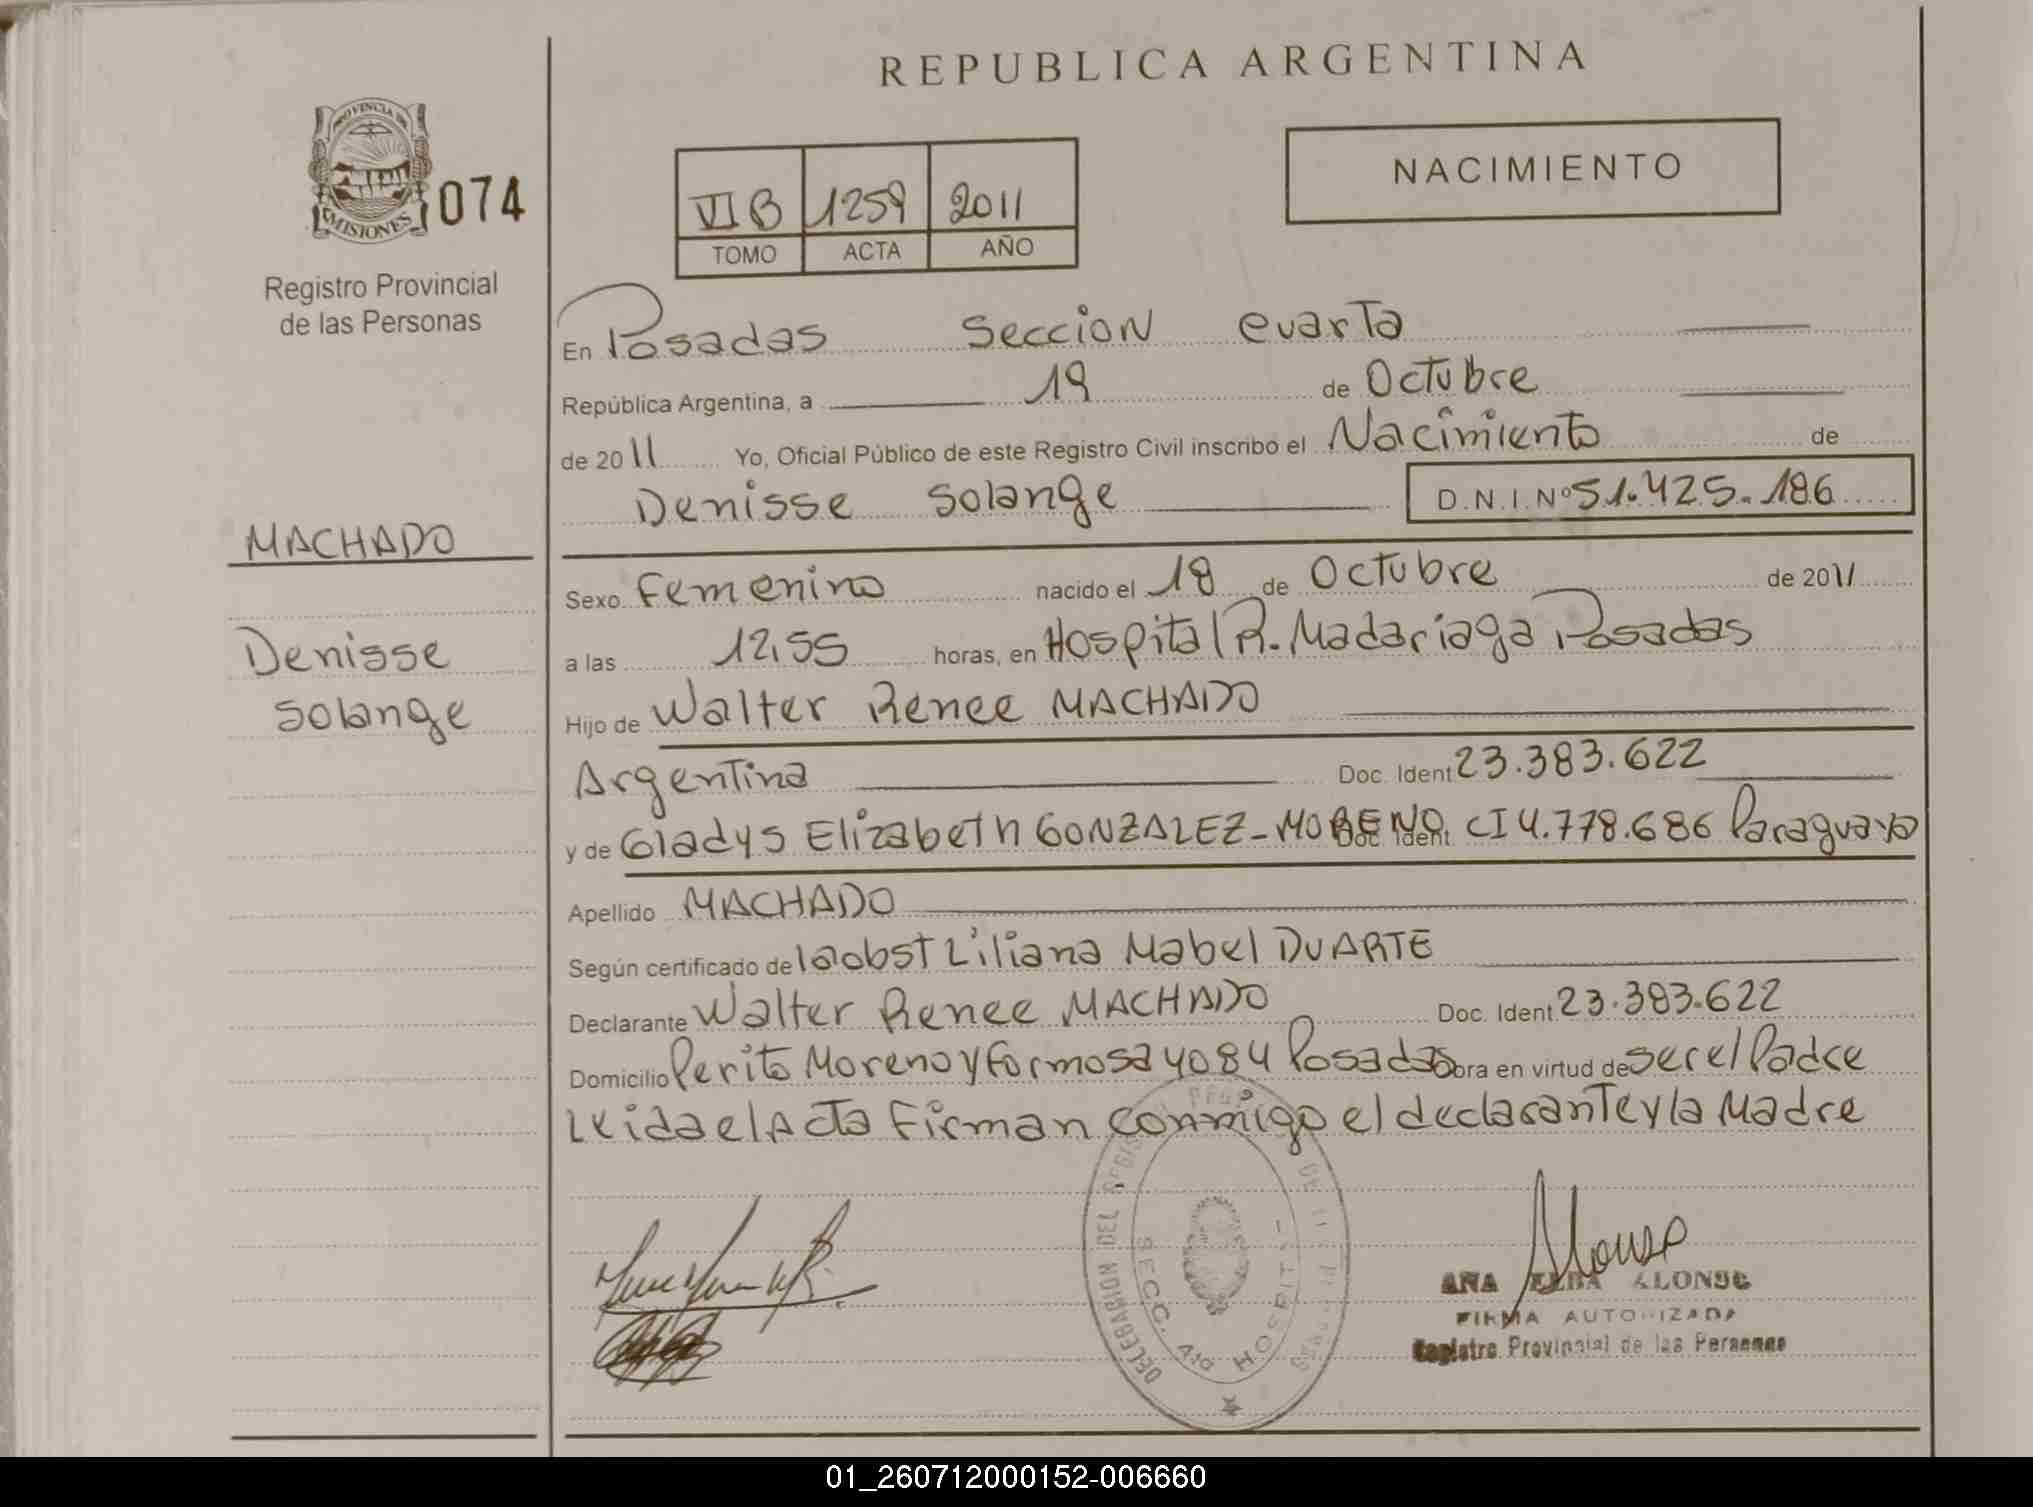 REPUBLICA ARGENTINA
PROVINCIA DE
MISIONES
074
Registro Provincial
de las Personas
VI B 1259 2011
TOMO ACTA AÑO
NACIMIENTO
En Posadas Seccion cuarta
República Argentina, a 19 de Octubre
de 2011 Yo, Oficial Público de este Registro Civil inscribo el Nacimiento de
Denisse Solange D.N.I. Nº 51.425.186
MACHADO
Denisse
Solange
Sexo Femenino nacido el 18 de Octubre de 2011
a las 12,55 horas, en Hospital R. Madariaga Posadas
Hijo de Walter Renee MACHADO
Argentina Doc. Ident 23.383.622
y de Gladys Elizabeth GONZALEZ-MORENO Doc. Ident. CI 4.778.686 Paraguaya
Apellido MACHADO
Según certificado de la obst Liliana Mabel DUARTE
Declarante Walter Renee MACHADO Doc. Ident 23.383.622
Domicilio Perito Moreno y Formosa 4084 Posadas Obra en virtud de ser el Padre
Leida el Acta Firman conmigo el declarante y la Madre
DELEGACION DEL
SECC. 4ta HOSPITAL
Alonso
ANA ELBA ALONSO
FIRMA AUTORIZADA
Registro Provincial de las Personas
01_260712000152-006660